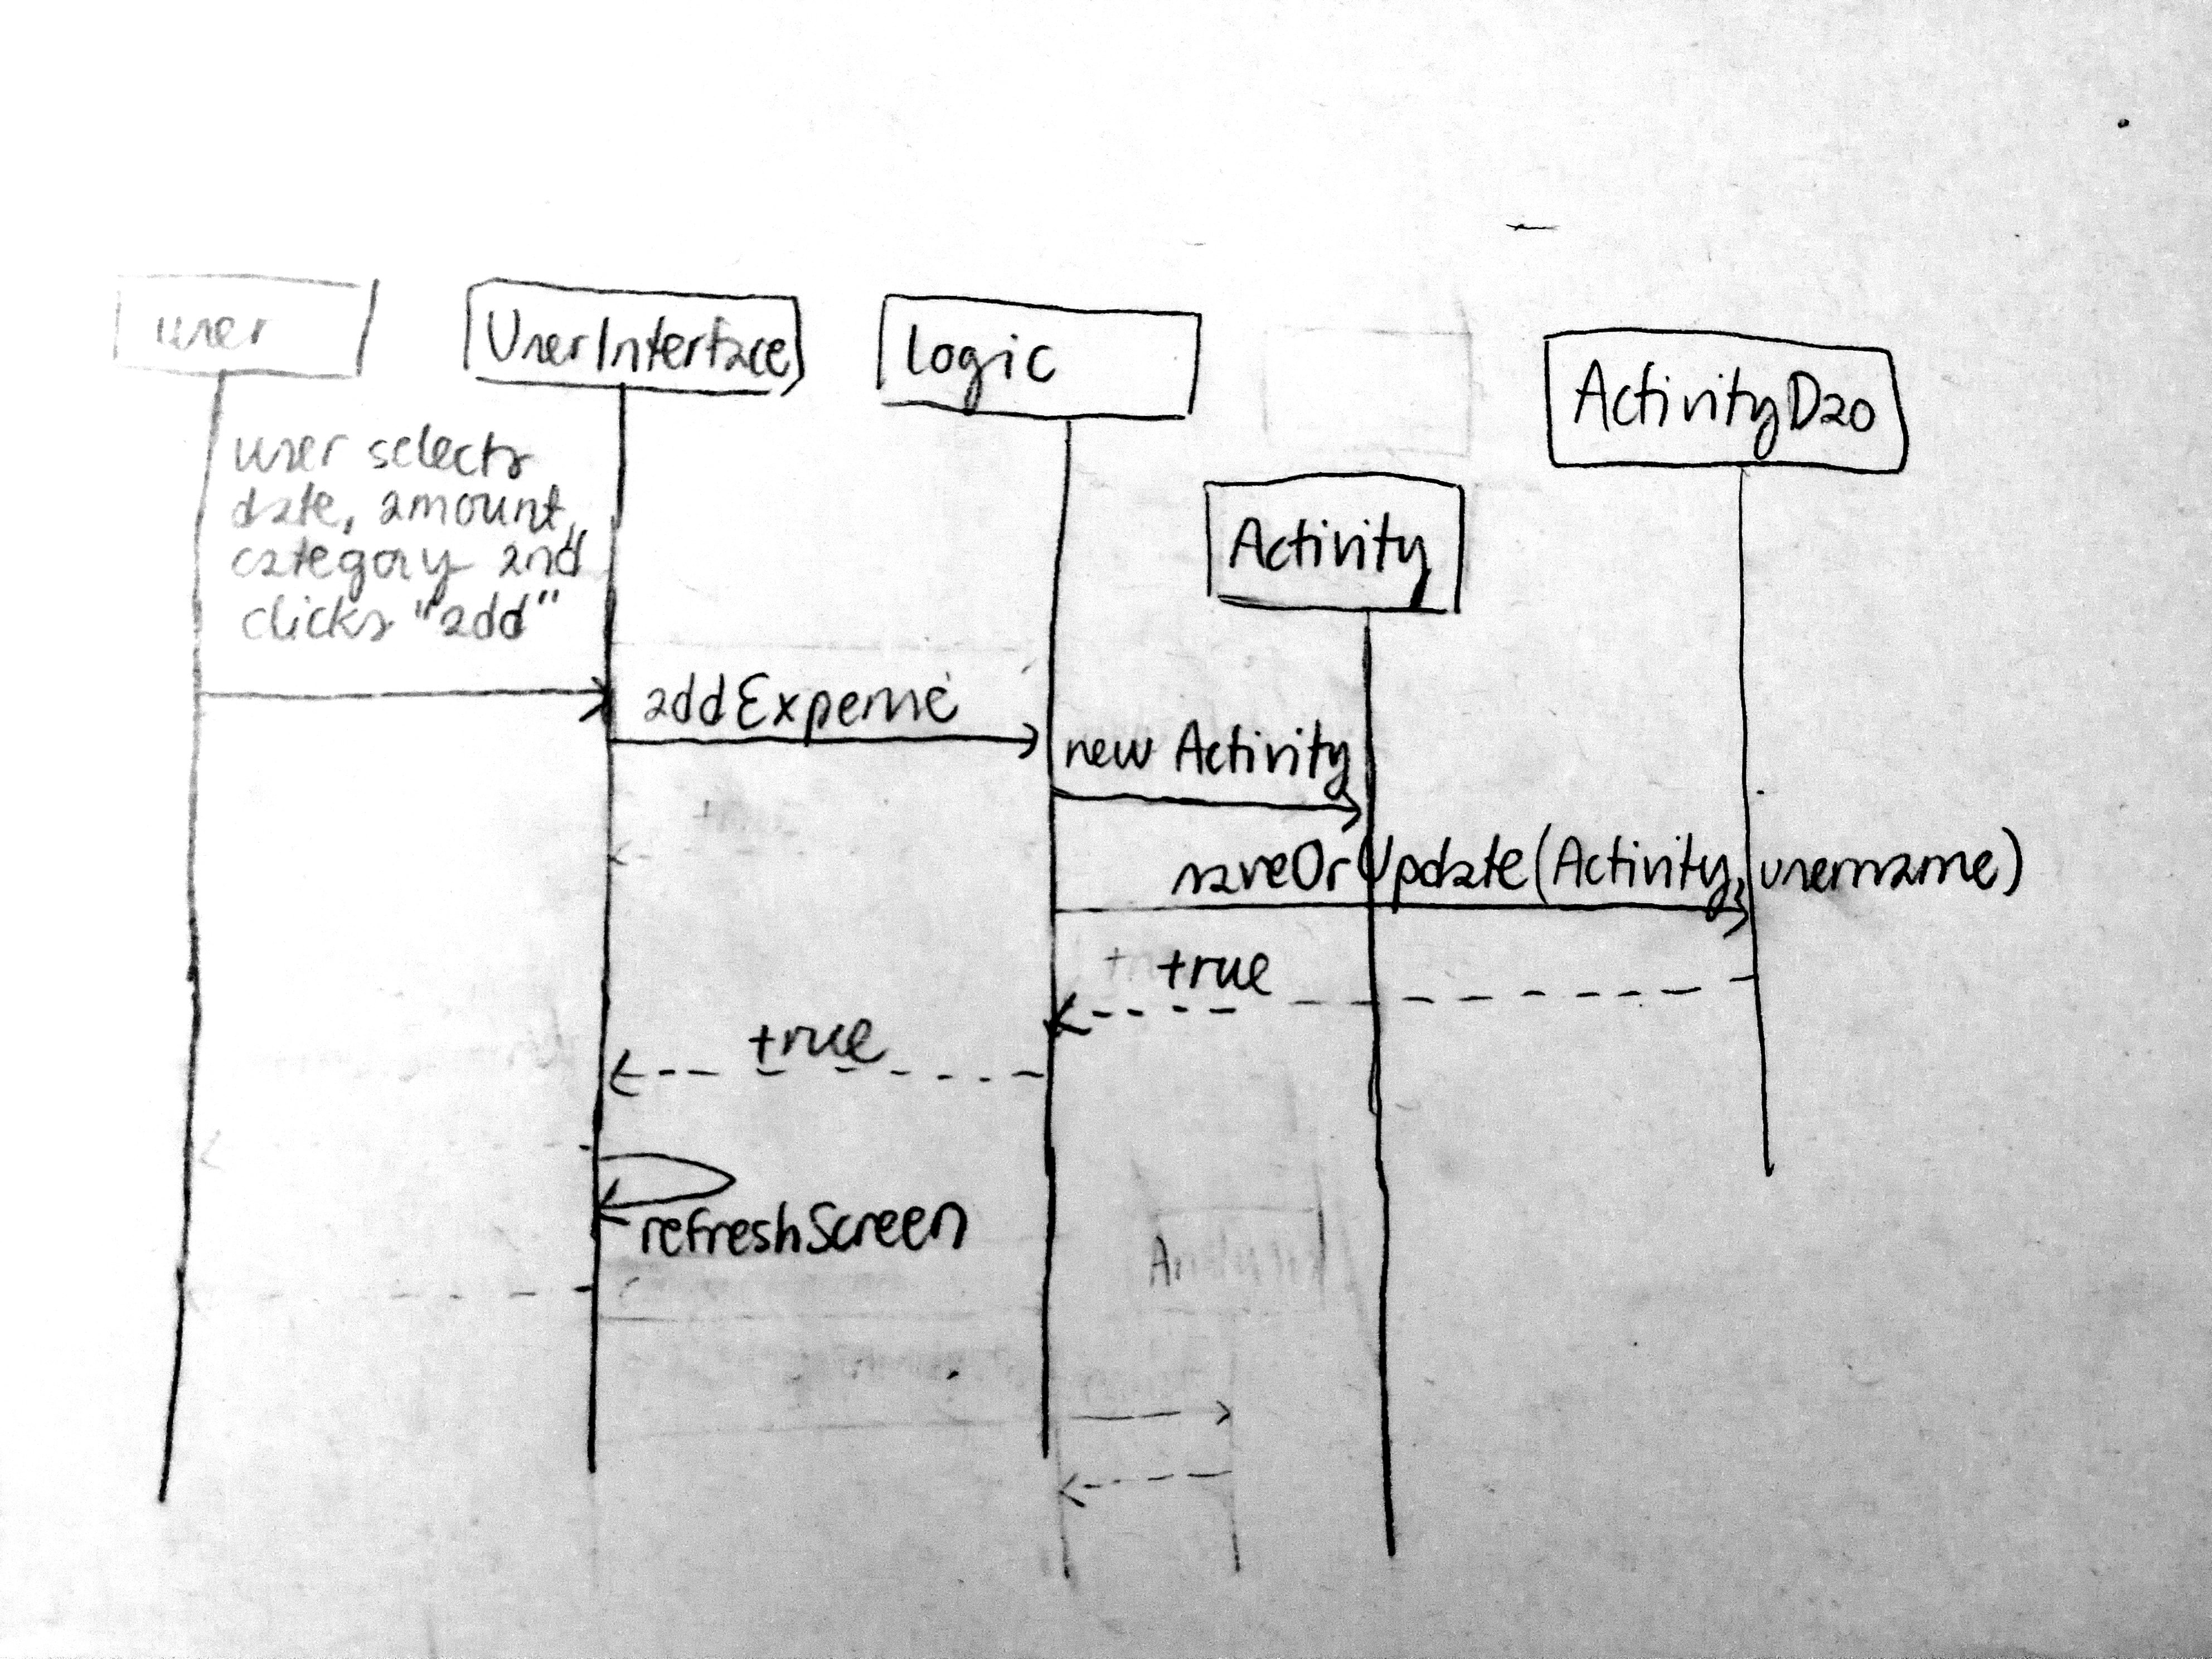 user
UserInterface
Logic
ActivityDao
Activity
user selects
date, amount,
category and
clicks "add"
addExpense
new Activity
saveOrUpdate(Activity, username)
true
true
refreshScreen